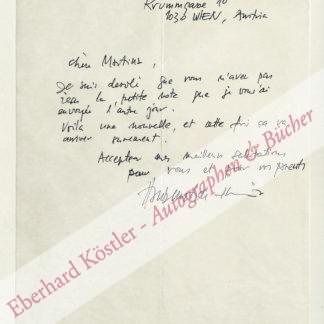 Krummgasse 10
1030 WIEN, Austria
chère Martina,
Je suis desolé que vous n'avez pas
reçu la petite note que je vous ai
envoyée l'autre jour.
Voilà une nouvelle, et cette foi ça va
arriver surement.
Acceptez mes meilleurs salutations
pour vous et pour vos parents
Eberhard Köstler - Autographen & Bücher